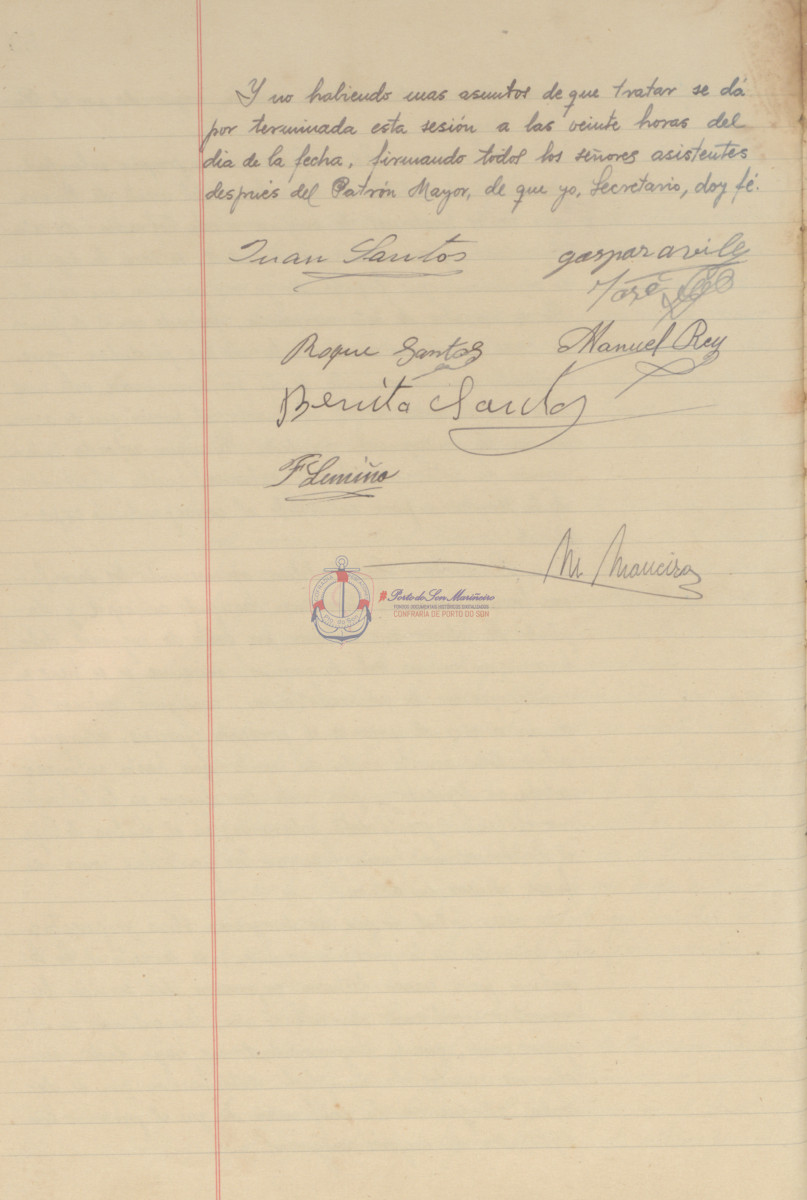 Y no habiendo mas asuntos de que tratar se dá
por terminada esta sesión a las veinte horas del
dia de la fecha, firmando todos los señores asistentes
después del Patrón Mayor, de que yo, Secretario, doy fé.
Juan Santos
gaspar avile
José
Roque Santos
Manuel Rey
Benito Santos
F Lemiño
M. Maneiro
Porto do Son Mariñeiro
FONDOS DOCUMENTAIS HISTÓRICOS DIXITALIZADOS
CONFRARÍA DE PORTO DO SON